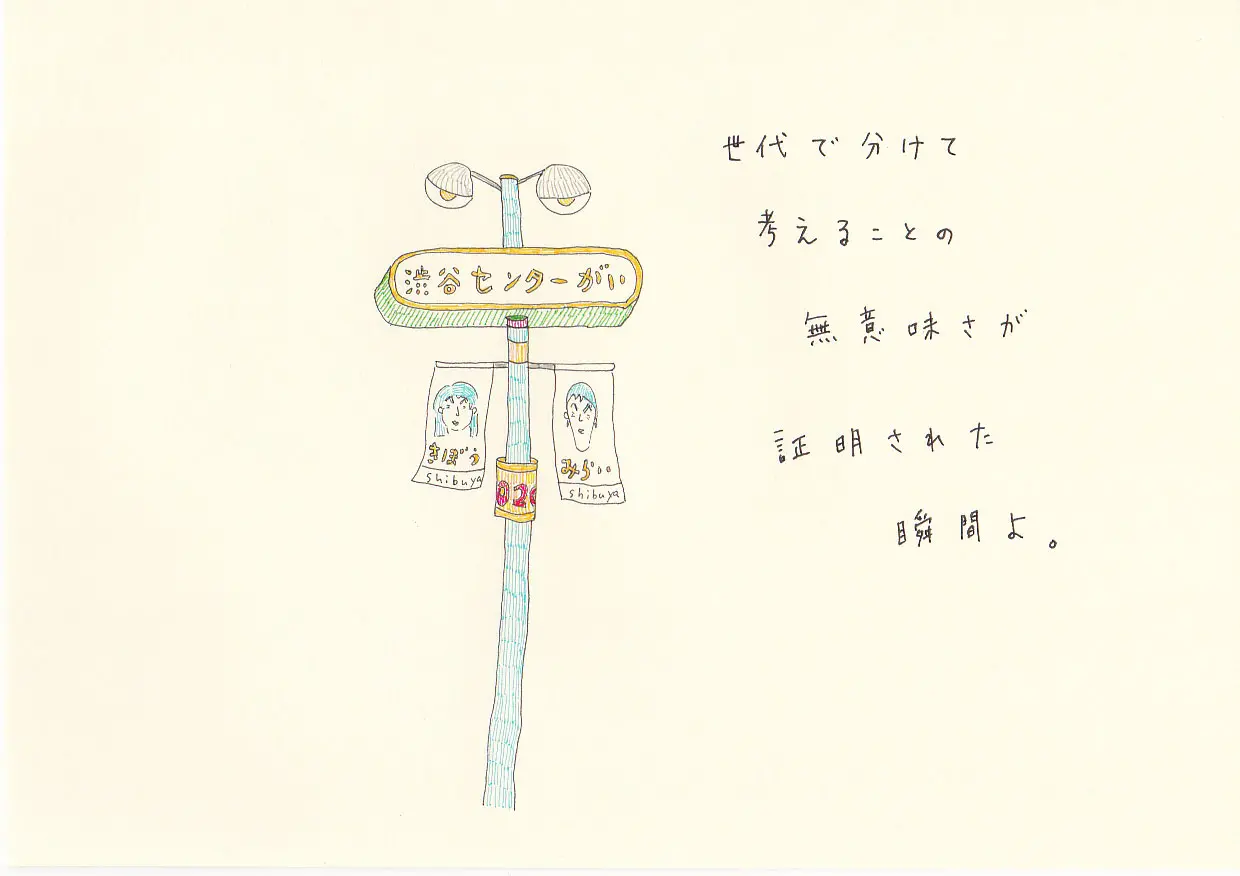 渋谷センターがい
きぼう
shibuya
みらい
shibuya
02
世代で分けて
考えることの
無意味さが
証明された
瞬間よ。